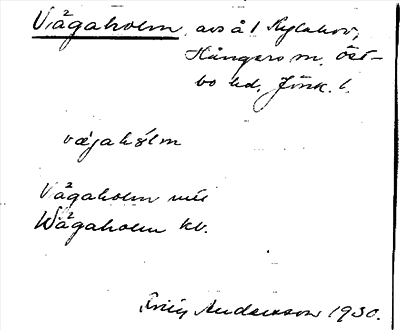 Vågaholm, avs å 1 Rylahov,
Kångero sn, Öst-
bo hd, Jönk. l.
vægahólm
Vågaholm
Wågaholm kv.
Anderson 1930.